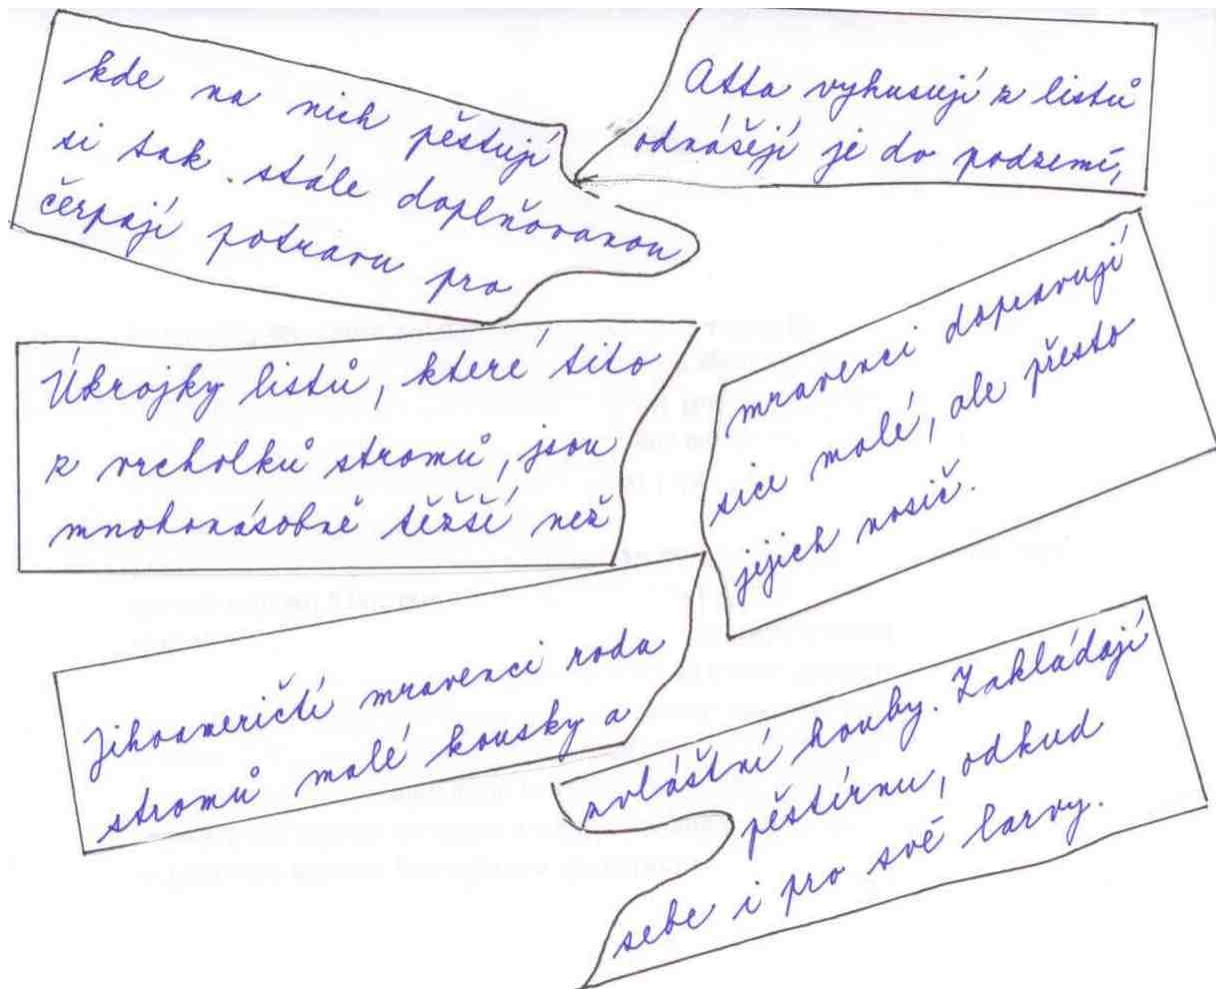 kde na nich pěstují
si tak stále doplňovanou
čerpají potravu pro
Atta vyhusují z listů
odnášejí je do podzemí,
Úkrojky listů, které tito
z vrcholků stromů, jsou
mnohonásobně těžší než
mravenci dopravují
sice malé, ale přesto
jejich nosič.
Jihoameričtí mravenci rodu
stromů malé kousky a
zvláštní houby. Zakládají
pěstírnu, odkud
sebe i pro své larvy.